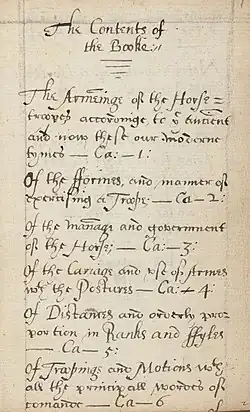 The Contents of
the Booke://
The Armeinge of the Horse=
troopes accordinge to yͤ Antient
and now these our moderne
tymes — Ca: — 1:
Of the fformes, and maner of
exercising a Troope: — Ca — 2:
Of the manage and government
of the Horse; — Ca: — 3:
Of the Cariage and use of Armes
wth the Postures — Ca: 4:
Of Distances and orderly pro:
portion in Ranks and ffyles
— Ca — 5:
Of Troopings and Motions wth
all the principall wordes of
comande Ca — 6